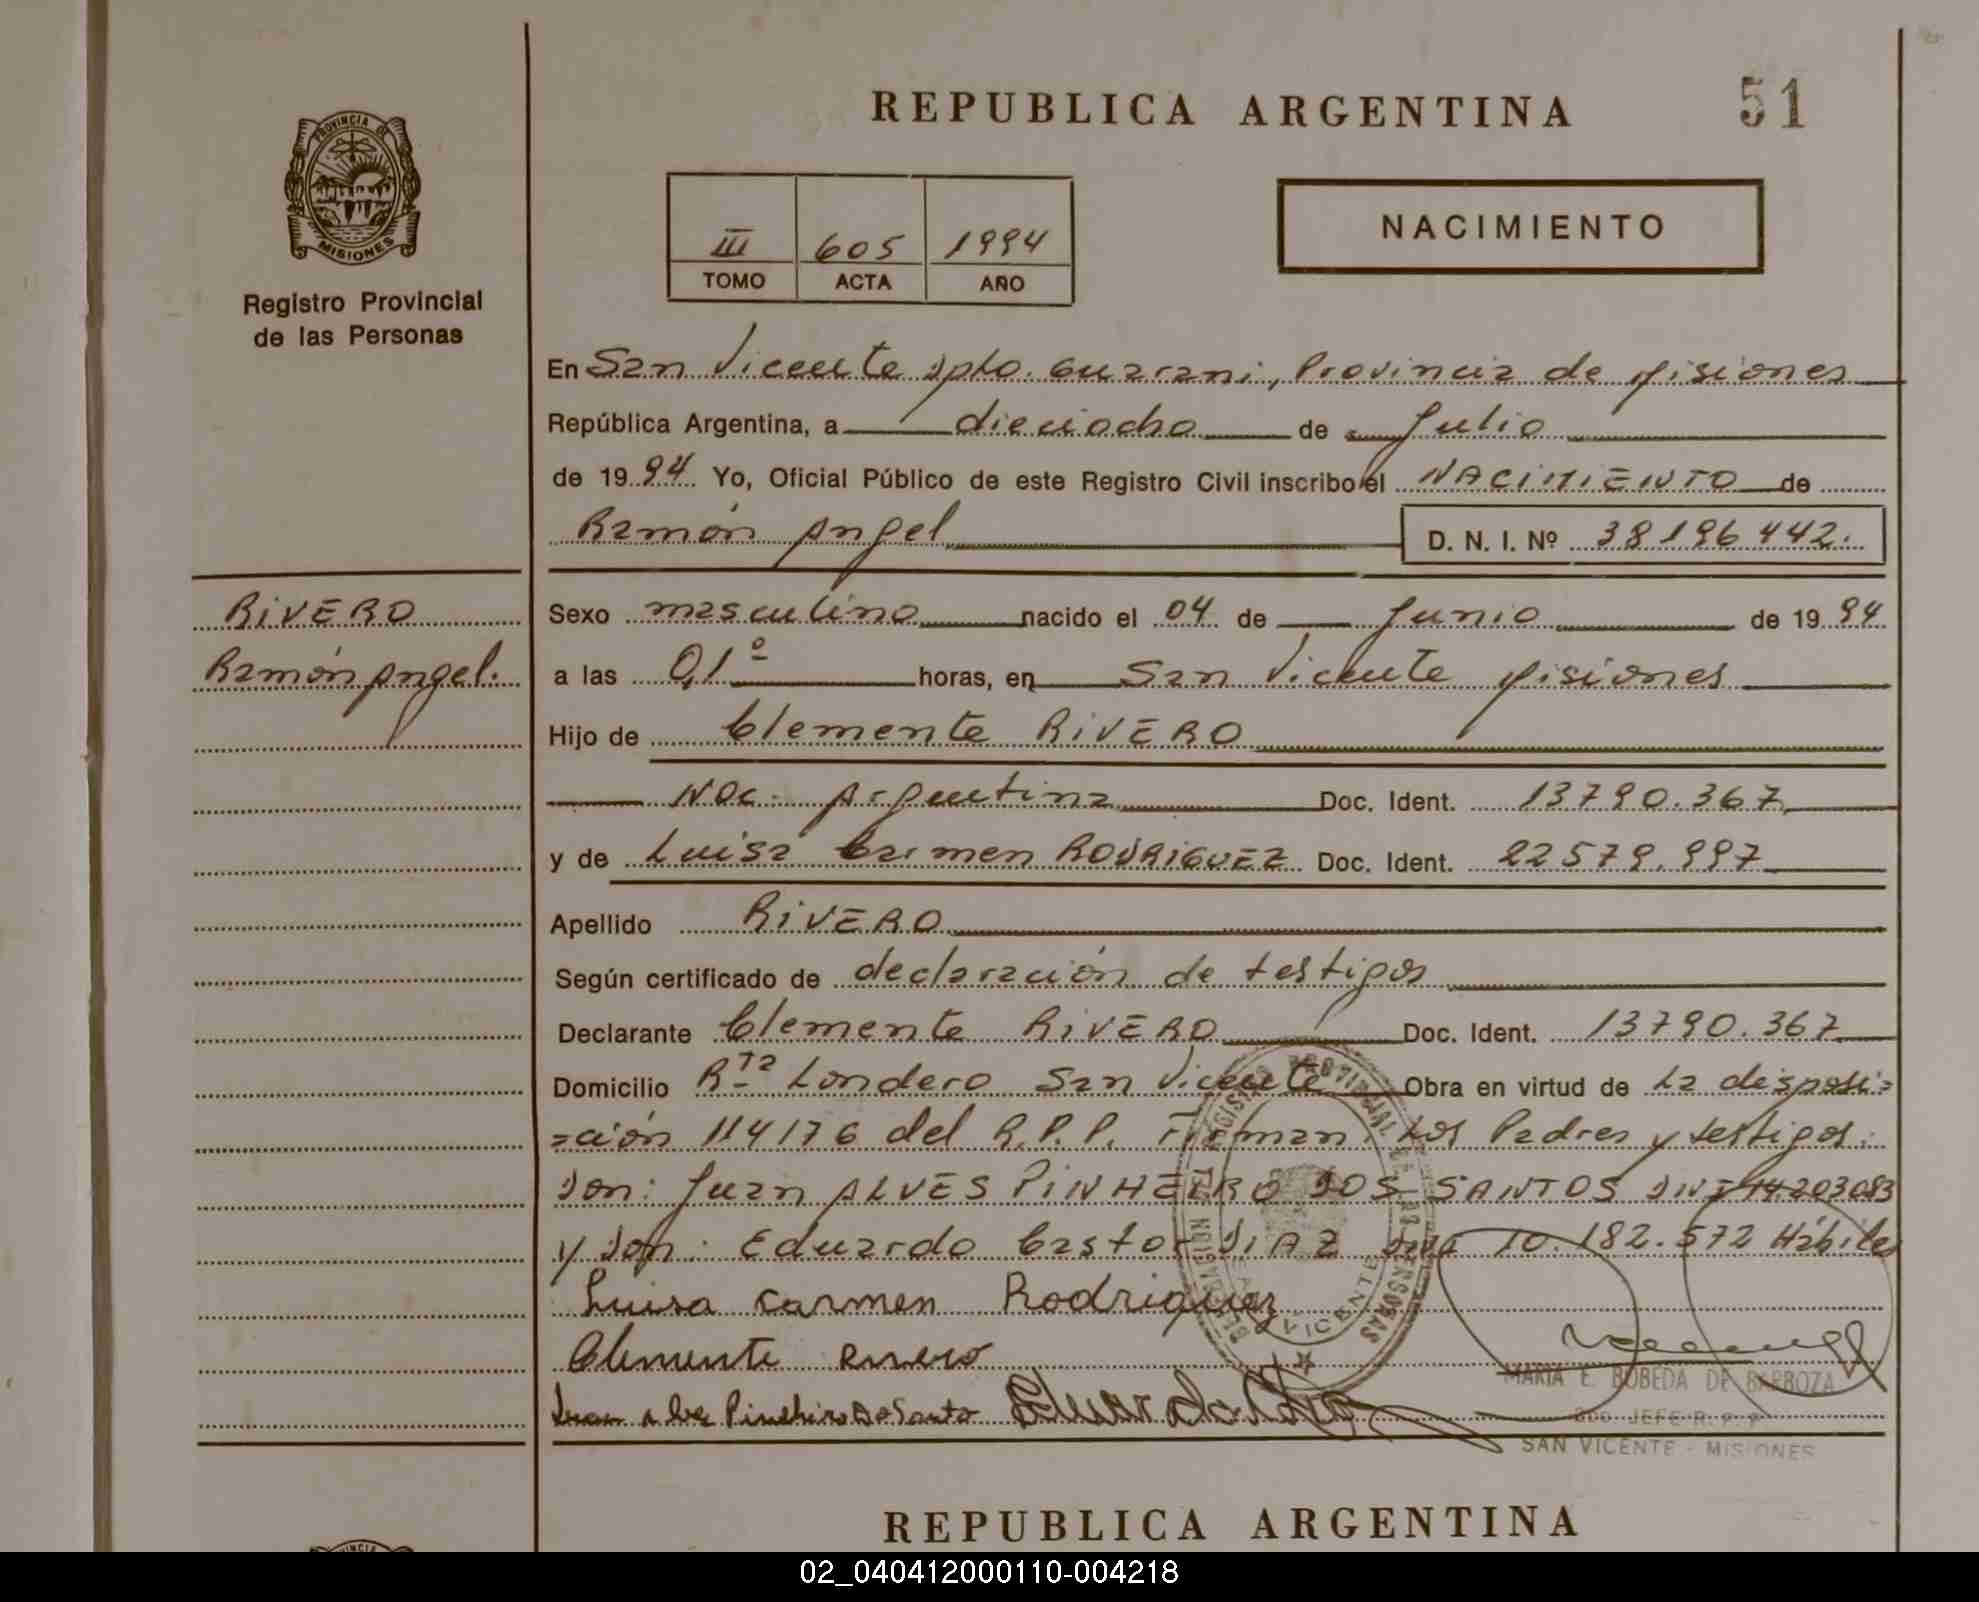 REPUBLICA ARGENTINA
51
PROVINCIA DE
MISIONES
Registro Provincial
de las Personas
III 605 1994
TOMO ACTA AÑO
NACIMIENTO
En San Vicente Dpto. Guarani, Provincia de Misiones
República Argentina, a dieciocho de Julio
de 1994 Yo, Oficial Público de este Registro Civil inscribo el NACIMIENTO de
Ramón Angel
D. N. I. Nº 38196442.
RIVERO
Ramón Angel.
Sexo masculino nacido el 04 de Junio de 1994
a las 0,1º horas, en San Vicente Misiones
Hijo de Clemente RIVERO
Nac. Argentina Doc. Ident. 13790.367
y de Luisa Carmen RODRIGUEZ Doc. Ident. 22579.997
Apellido RIVERO
Según certificado de declaración de testigos
Declarante Clemente RIVERO Doc. Ident. 13790.367
Domicilio Rta Londero San Vicente Obra en virtud de La disposi=
=ción 114176 del R.P.P. Firman: Los Padres y testigos:
Don: Juan ALVES PINHEIRO DOS SANTOS DNI 14.203083
y Don: Eduardo Castor DIAZ 10.182.572 Hábiles
Luisa Carmen Rodriguez
Clemente Rivero
Juan alves Pinehiro Do Santo Eduardo
MARIA E. BOBEDA DE BARBOZA
JEFE R. P. P
SAN VICENTE - MISIONES
REPUBLICA ARGENTINA
02_040412000110-004218